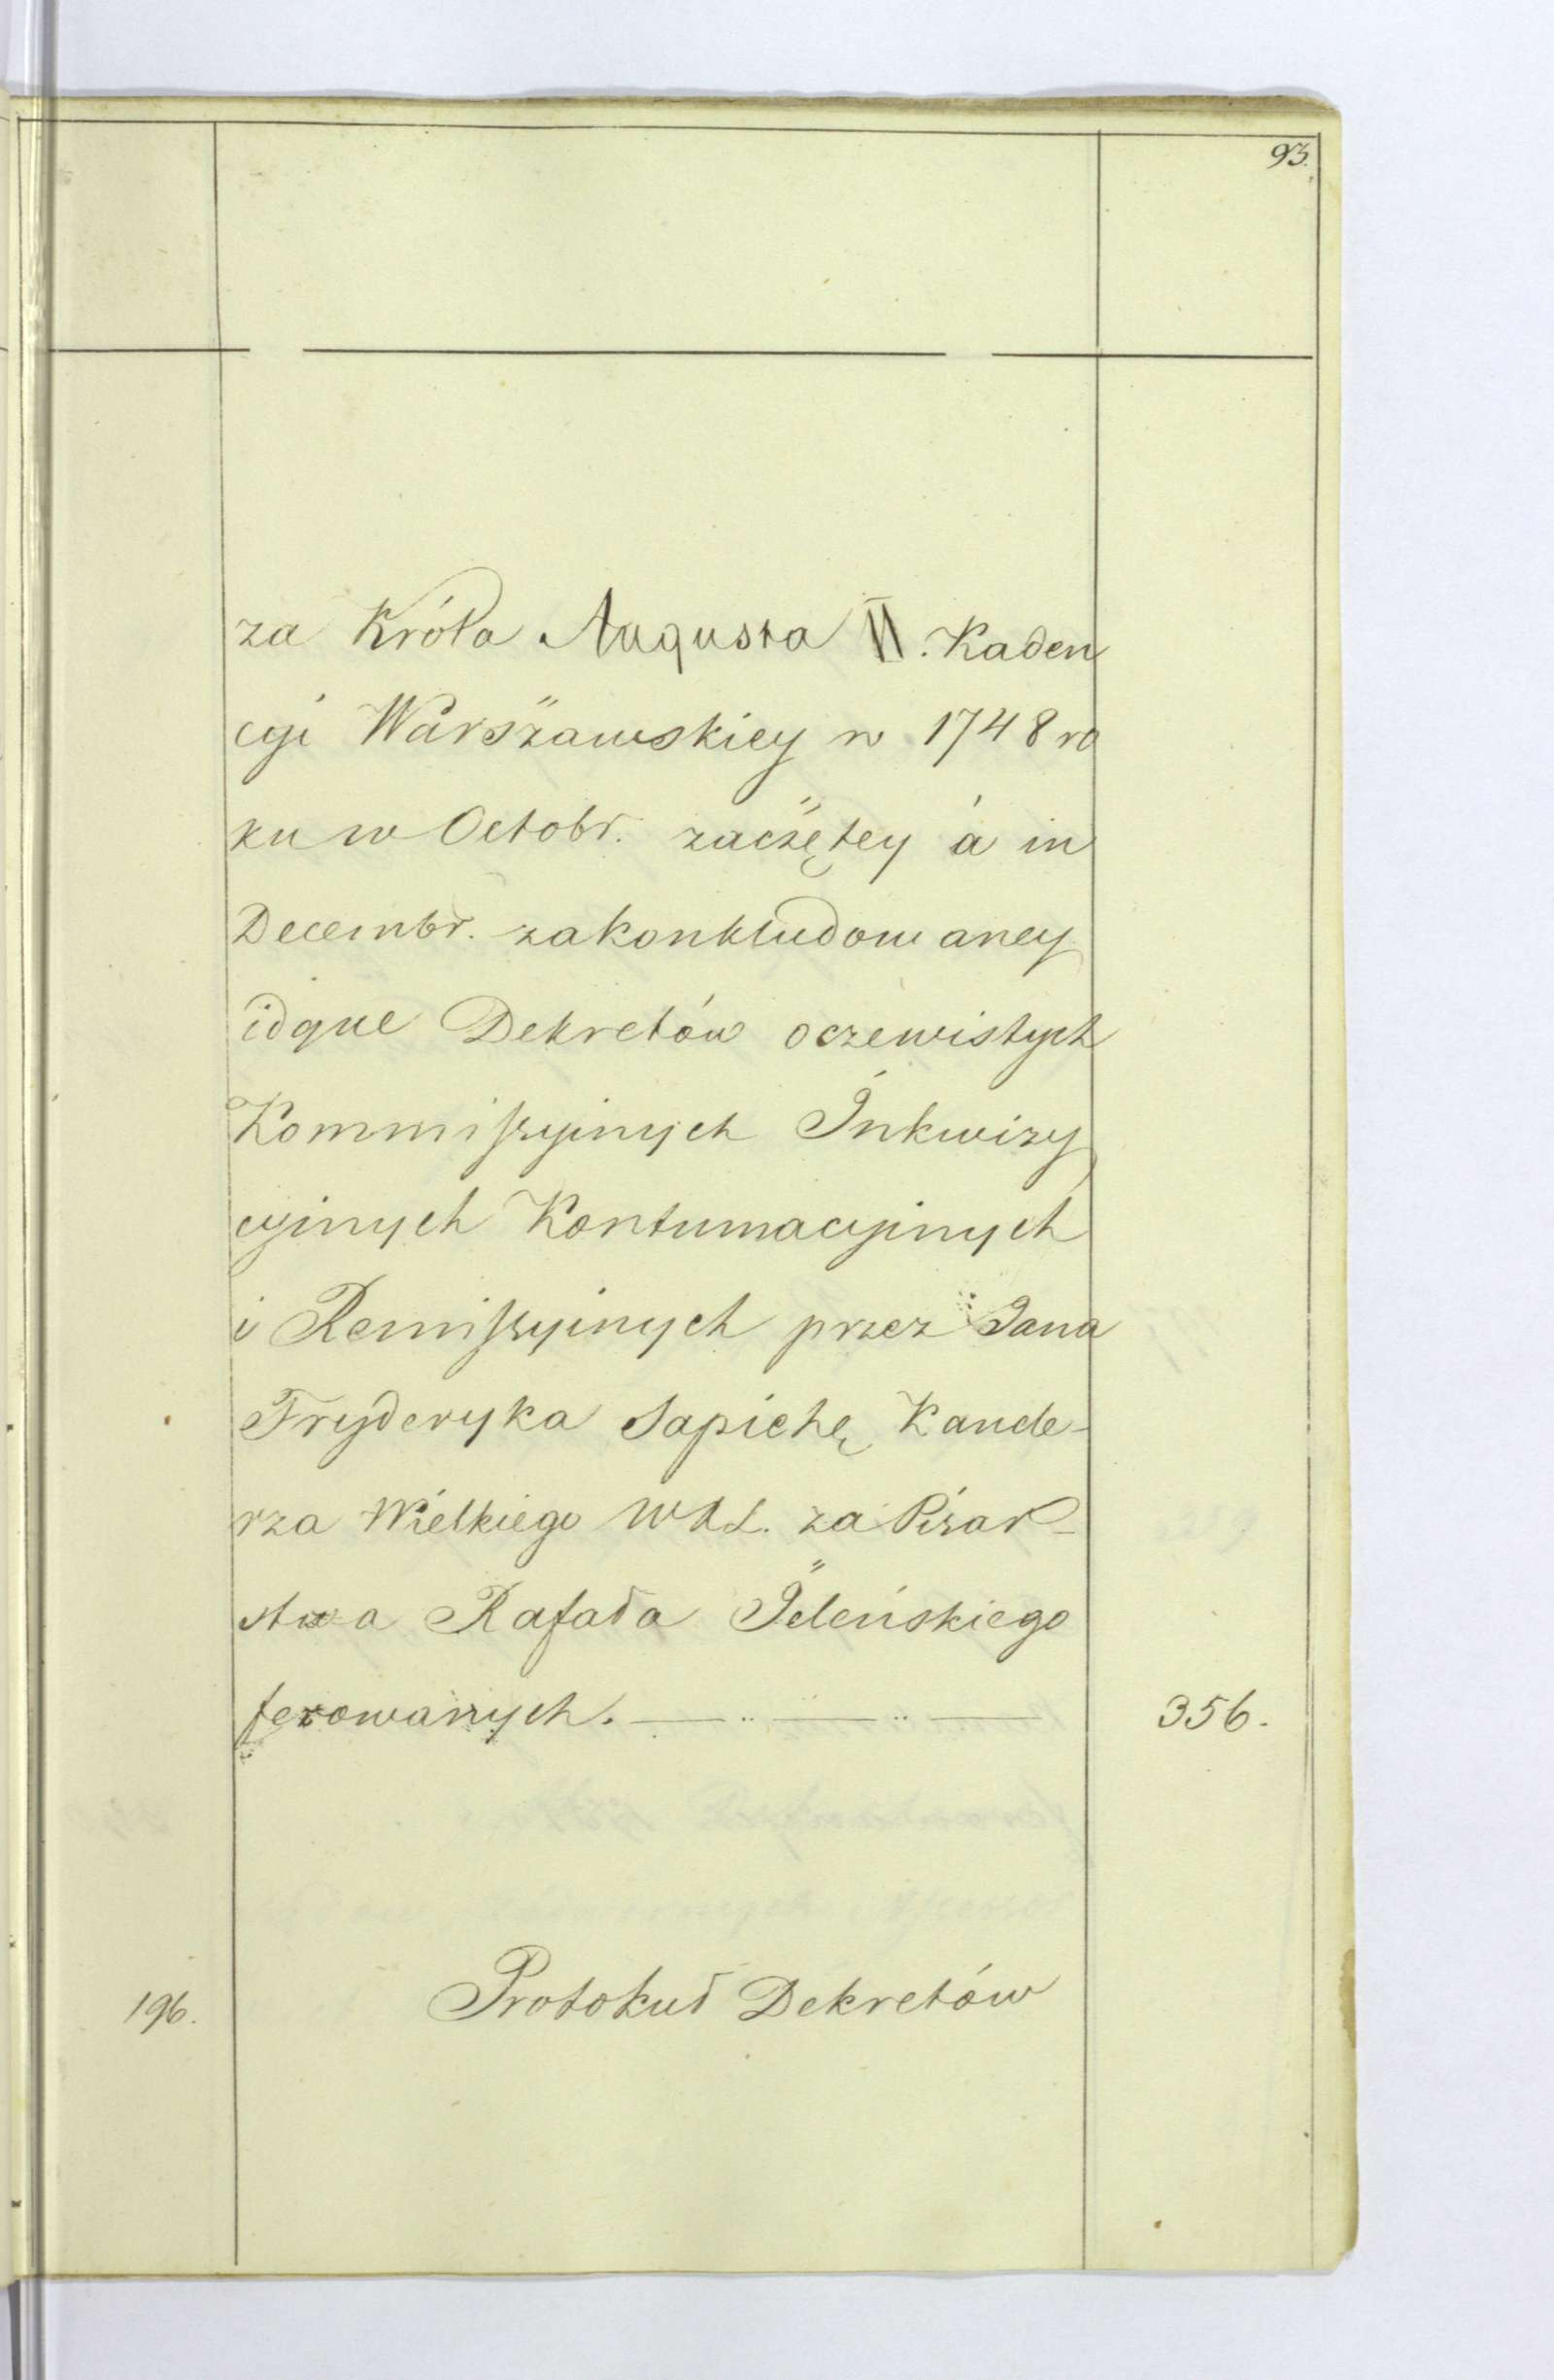 93.
za Króla Augusta II. Kaden
cyi Warszawskiey w 1748 ro
ku w Octobr. zaczętey á in
Decembr. zakonkludowaney
idque Dekretów oczewistych
Kommissyinych Inkwizy
cyinych Kontumacyinych
i Remissyinych przez Jana
Fryderyka Sapiehę Kancle-
rza Wielkiego WXL. za Pisar-
stwa Rafała Jeleńskiego
ferowanych. 356.
196. Protokuł Dekretów